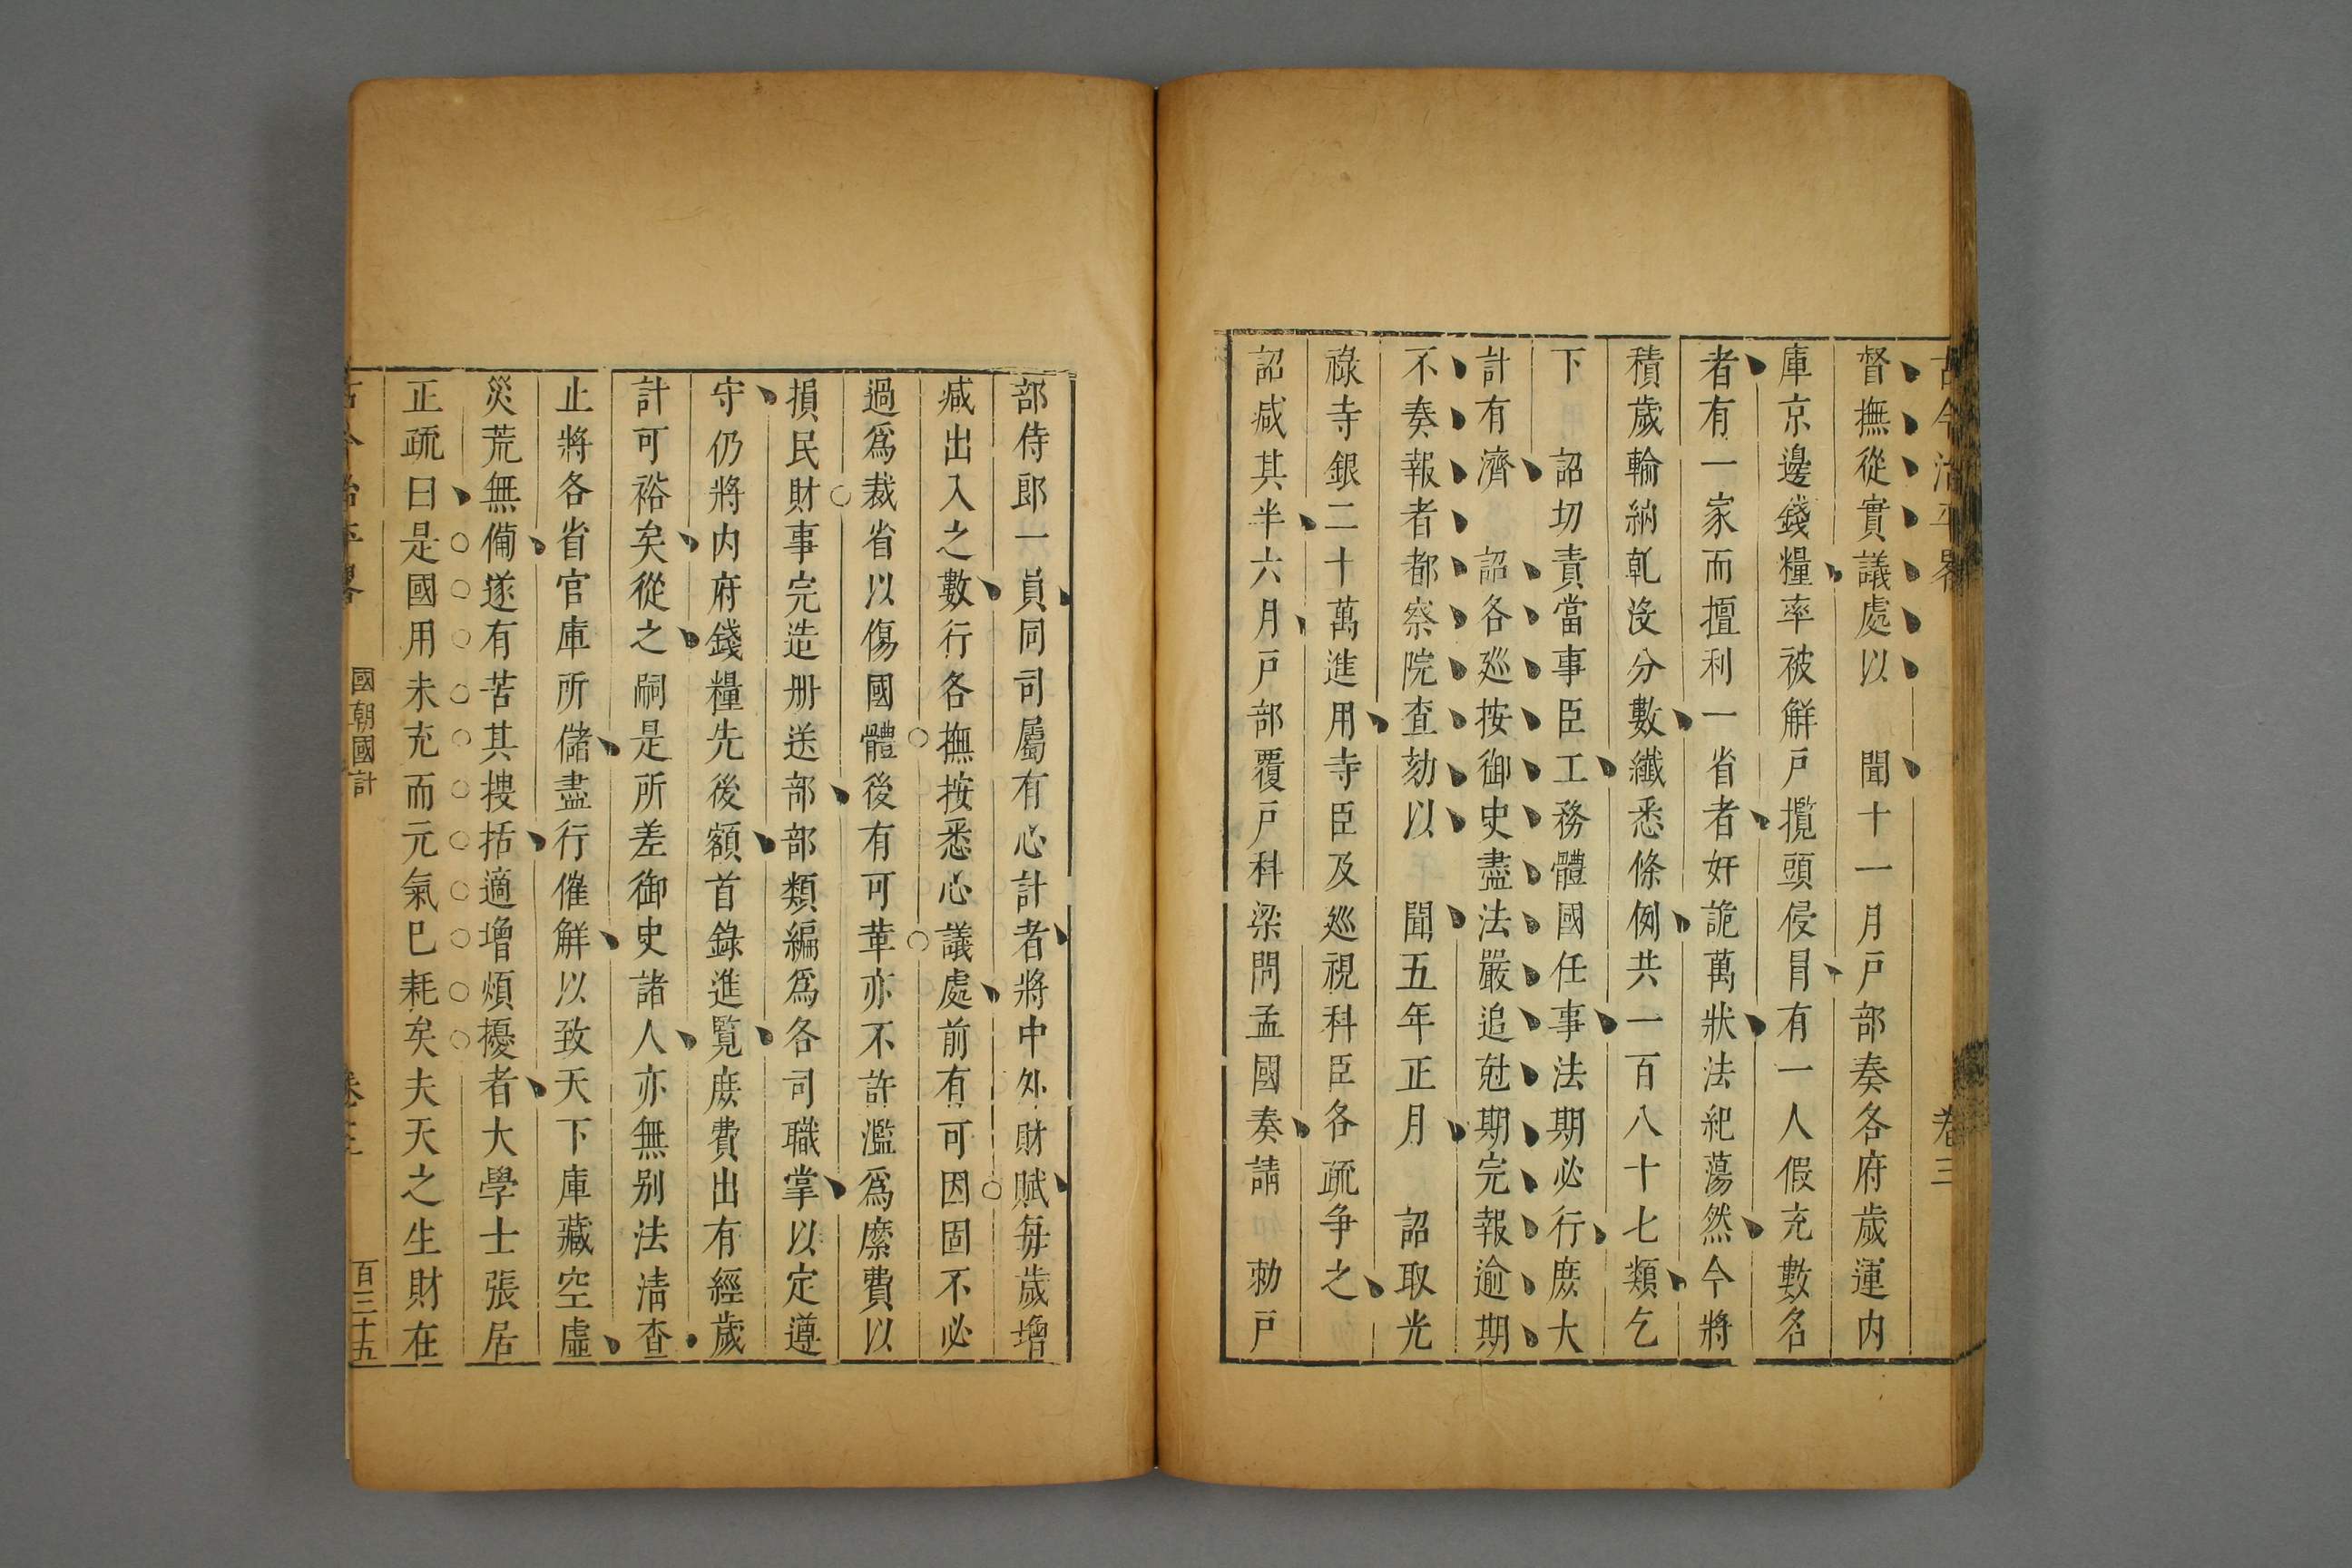 古今治平畧　卷三
督撫從實議處以　聞十一月戸部奏各府歲運内
庫京邊錢糧率被解戸攬頭侵冐有一人假充數名
者有一家而擅利一省者奸詭萬狀法紀蕩然今將
積歲輸納乹沒分數纖悉條例共一百八十七類乞
下　詔切責當事臣工務體國任事法期必行庶大
計有濟　詔各巡按御史盡法嚴追尅期完報逾期
不奏報者都察院查劾以　聞五年正月　詔取光
祿寺銀二十萬進用寺臣及巡視科臣各疏争之
詔减其半六月戸部覆戸科梁問孟國奏請　勅戸
部侍郎一員同司屬有心計者將中外財賦每歲增
减出入之數行各撫按悉心議處前有可因固不必
過爲裁省以傷國體後有可革亦不許濫爲縻費以
損民財事完造册送部部類編爲各司職掌以定遵
守仍將内府錢糧先後額首錄進覧庶費出有經歲
計可裕矣從之嗣是所差御史諸人亦無别法清查
止將各省官庫所儲盡行催解以致天下庫藏空虛
災荒無備遂有苦其摟括適增煩擾者大學士張居
正疏曰是國用未充而元氣已耗矣夫天之生財在
古今治平畧　國朝國計　卷三　百三十五